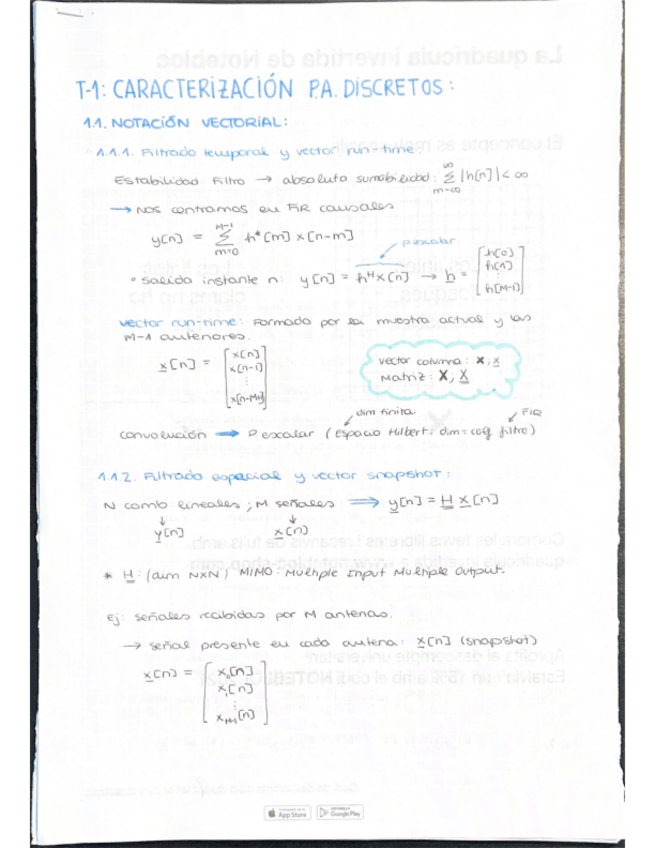 T-1: CARACTERIZACIÓN P.A. DISCRETOS:
1.1. NOTACIÓN VECTORIAL:
1.1.1. Filtrado temporal y vector run-time:
Estabilidad Filtro → absoluta sumabilidad: ∞ Σ m=-∞ |h[n]| < ∞
→ Nos centramos en FIR causales
y[n] = M-1 Σ m=0 h*[m] x[n-m]
p.escalar
• salida instante n: y[n] = h^H x[n] → h = [h[0] h[1] ⋮ h[M-1]]
vector run-time: Formado por la muestra actual y las
M-1 anteriores.
x[n] = [x[n] x[n-1] ⋮ x[n-M+1]]
vector columna: x; x
Matriz: X; X
dim finita. FIR
convolución → P. escalar (Espacio Hilbert: dim = coef. filtro)
1.1.2. Filtrado espacial y vector snapshot:
N comb lineales; M señales ⇒ y[n] = H x[n]
↓ ↓
y[n] x[n]
* H: (dim NxN) MIMO: Multiple Input Multiple Output.
ej: señales recibidas por M antenas.
→ señal presente en cada antena: x[n] (snapshot)
x[n] = [x0[n] x1[n] ⋮ xM-1[n]]
App Store Google Play